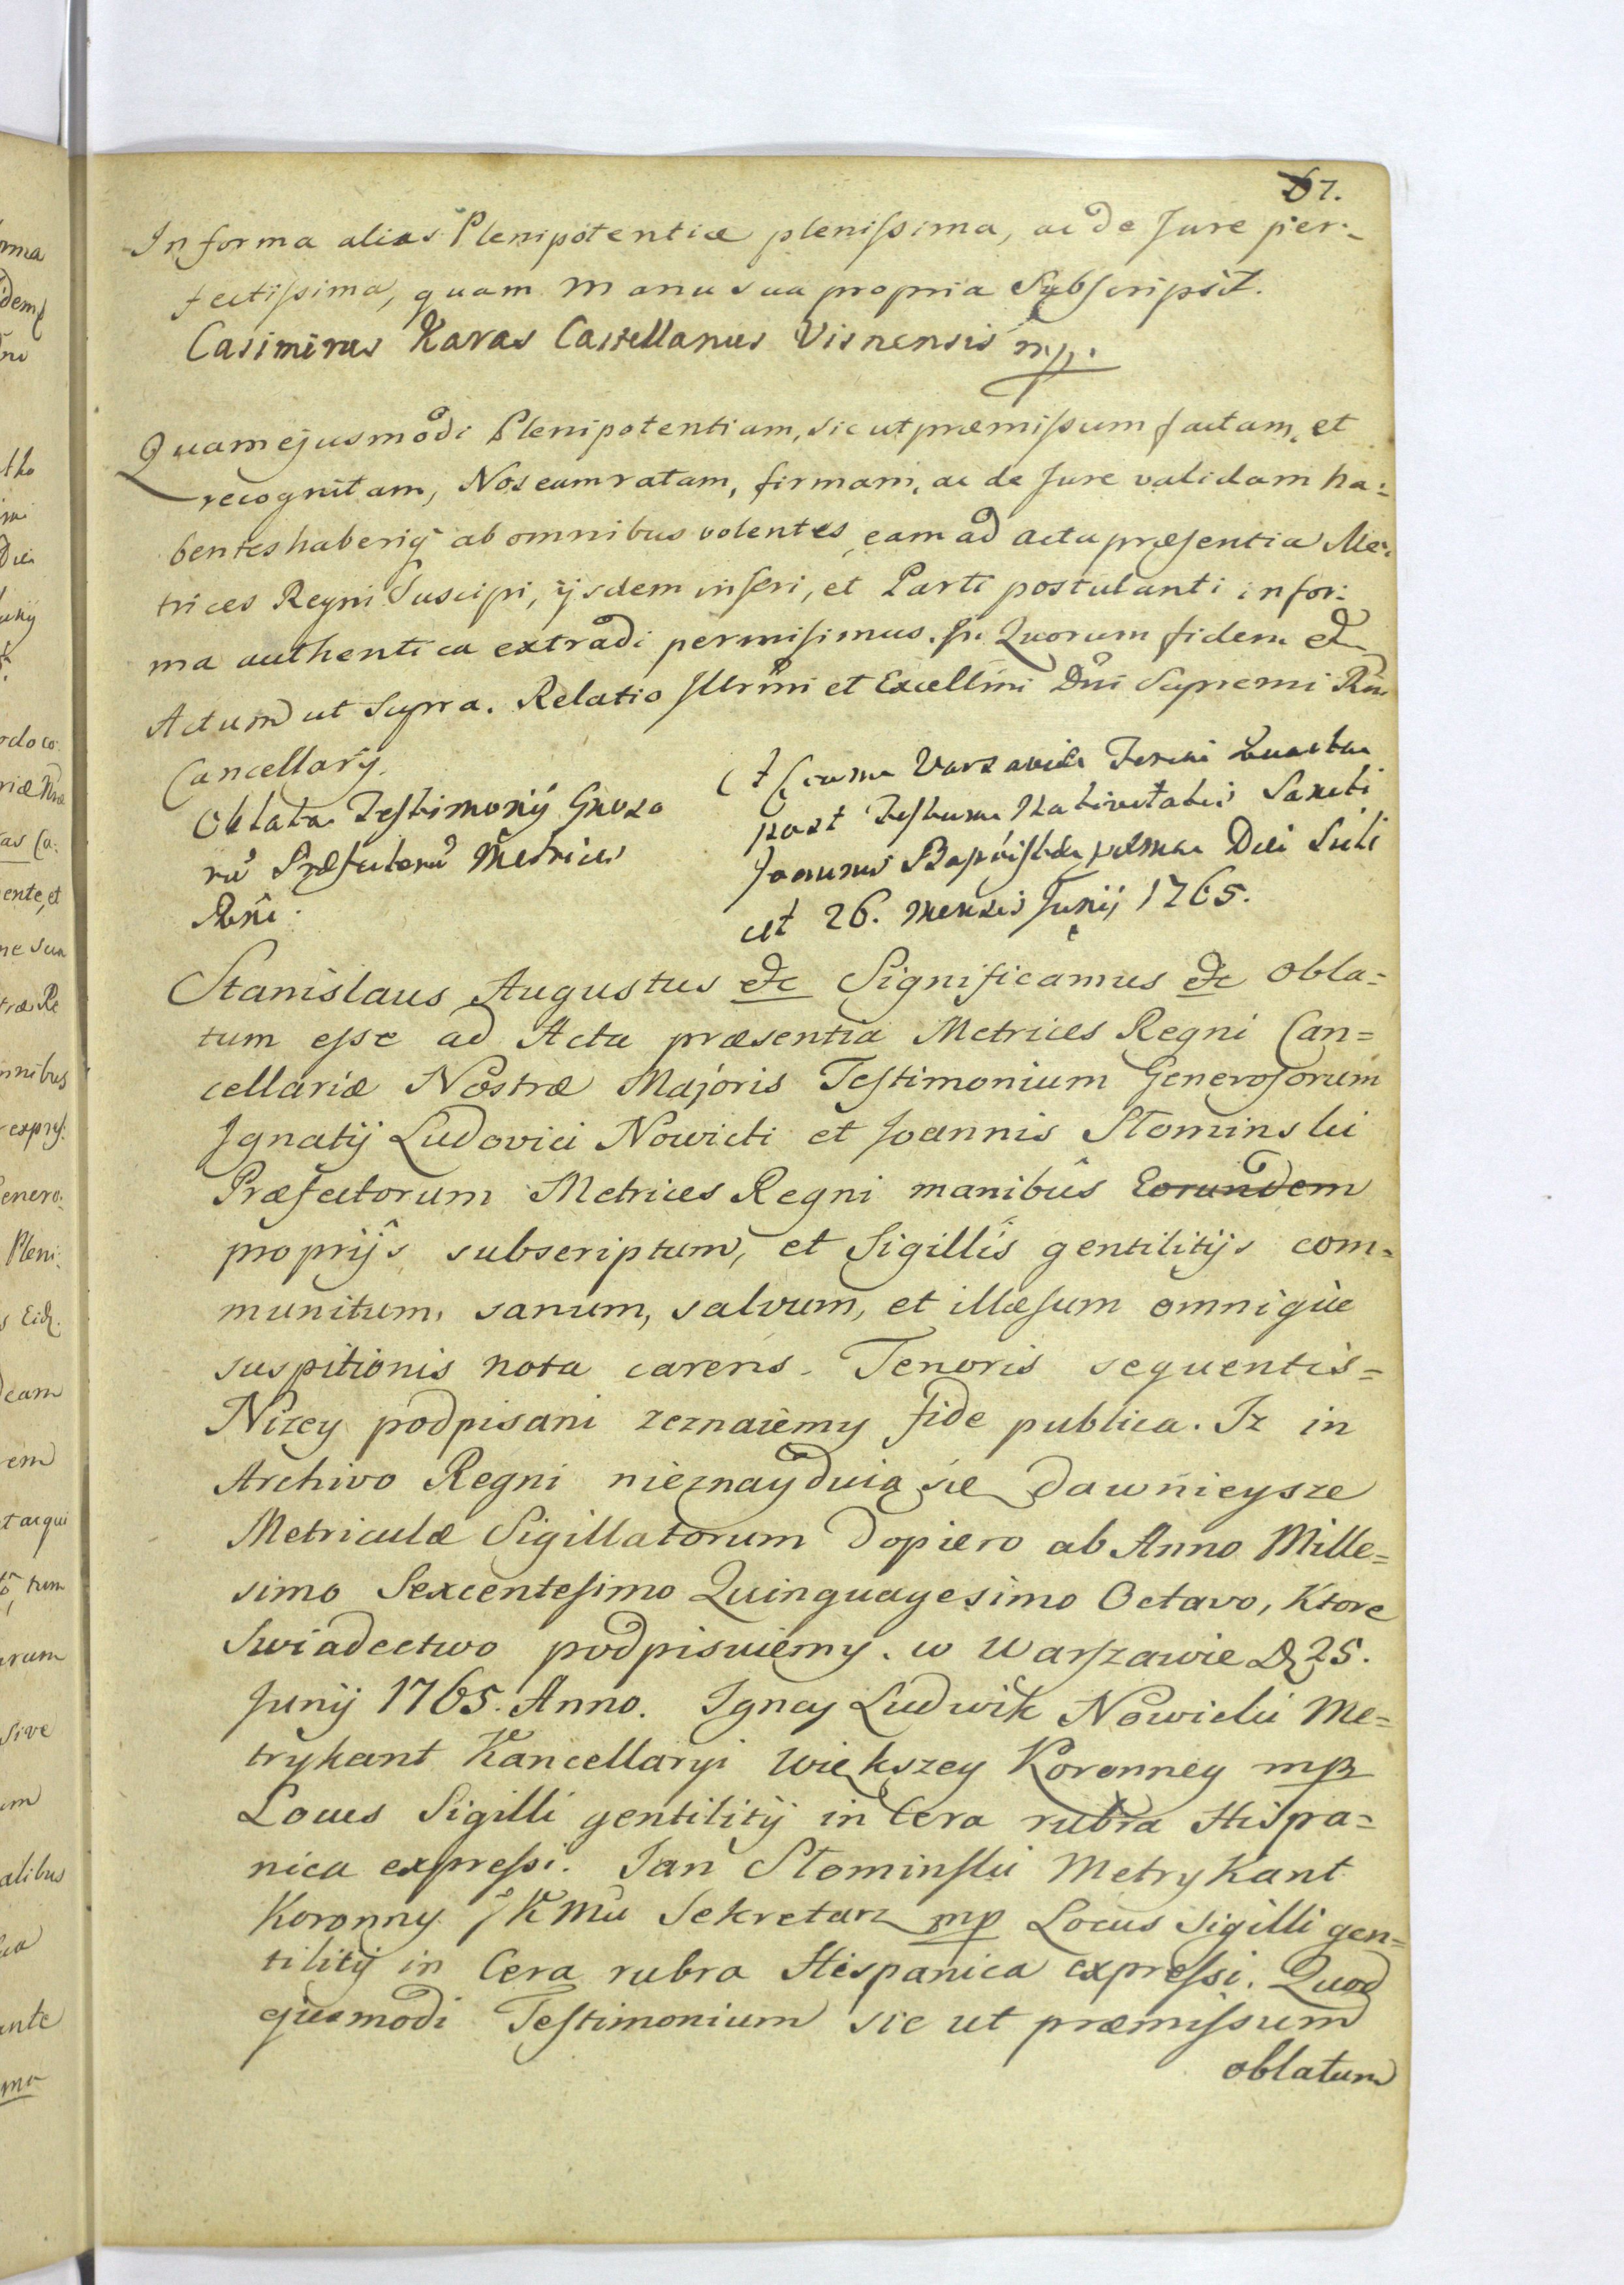 67.
In forma alias Plenipotentiæ plenissima, ac de Jure per-
fectissima, quam manu sua propria Subscripsit.
Casimirus Karas Castellanus Visnensis mp.
Quam ejusmodi Plenipotentiam, sic ut præmissum factam, et
recognitam, Nos eam ratam, firmam, ac de Jure validam ha=
bentes haberiq ab omnibus volentes, eam ad acta præsentia Me=
trices Regni Suscipi, ijsdem inseri, et Parti postulanti in for=
ma authentica extradi permisimus. In Quorum fidem et
Actum ut Supra. Relatio Illrmi et Excellmi Dni Supremi Rni
Cancellarÿ.
Oblata Testimonÿ Gnoso
rũ Præfectorũ Metrices
Rni.
Actum Varsaviæ Feria Quarta
post Festum Nativitatis Sancti
Joannis Baptistæ proxima Die Scili
cet 26. Mensis Junij 1765.
Stanislaus Augustus etc Significamus etc obla=
tum esse ad Acta præsentia Metrices Regni Can=
cellariæ Nostræ Majoris Testimonium Generosorum
Ignatij Ludovici Nowicki et Joannis Słominski
Præfectorum Metrices Regni manibus Eorundem
proprijs subscriptum, et Sigillis gentilitijs com=
munitum, sanum, salvum, et illæsum omnique
suspitionis nota carens. Tenoris sequentis=
Nizey podpisani zeznaiemy fide publica. Iz in
Archivo Regni nieznayduią się dawnieysze
Metriculæ Sigillatorum dopiero ab Anno Mille=
simo Sexcentesimo Quinquagesimo Octavo, Ktore
Swiadectwo podpisuiemy. w Warszawie D 25.
Junij 1765. Anno. Ignacy Ludwik Nowicki Me=
trykant Kancellaryi Większey Koronney mp
Locus Sigilli gentilitij in Cera rubra Hispa=
nica expressi. Jan Słominski Metrykant
Koronny J K Mci Sekretarz mp Locus Sigilli gen=
tilitij in Cera rubra Hispanica expressi. Quod
ejusmodi Testimonium sic ut præmissum
oblatum